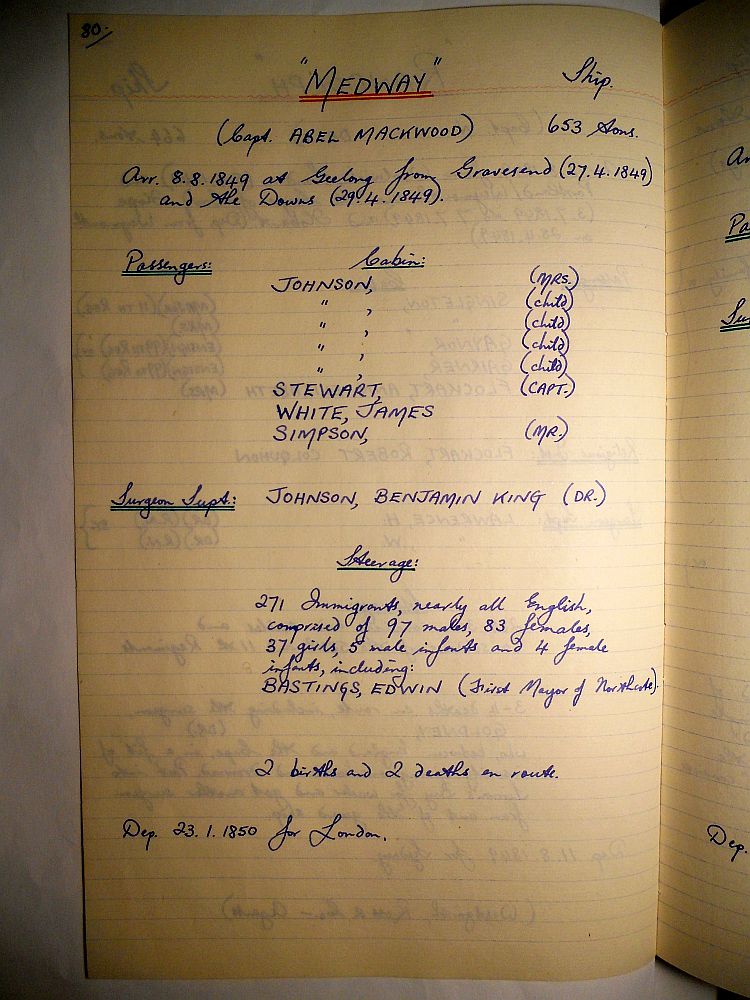 80.
"MEDWAY" Ship.
(Capt. ABEL MACKWOOD) 653 Tons.
Arr. 8.8.1849 at Geelong from Gravesend (27.4.1849)
and the Downs (29.4.1849).
Passengers: Cabin:
JOHNSON, (MRS.)
" , (child)
" , (child)
" , (child)
" , (child)
STEWART, (CAPT.)
WHITE, JAMES
SIMPSON, (MR.)
Surgeon Supt.: JOHNSON, BENJAMIN KING (DR.)
Steerage:
271 Immigrants, nearly all English,
comprised of 97 males, 83 females,
37 girls, 5 male infants and 4 female
infants, including:
BASTINGS, EDWIN (First Mayor of Northcote).
2 births and 2 deaths en route.
Dep. 23.1.1850 for London.
Dep.